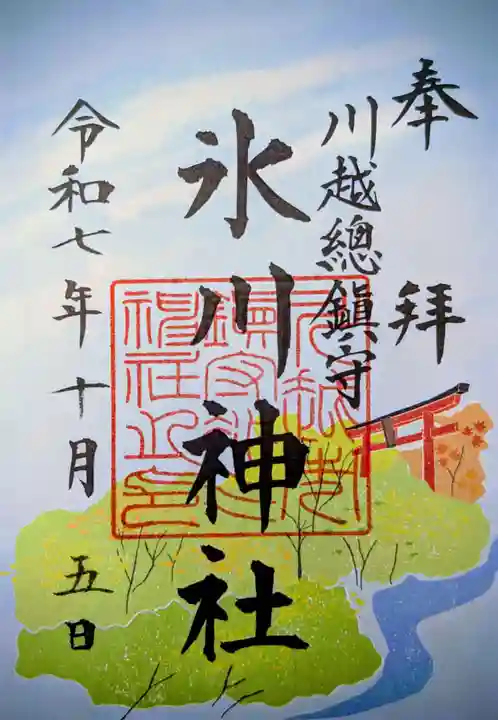 奉拝
川越總鎮守
氷川神社
令和七年十月五日